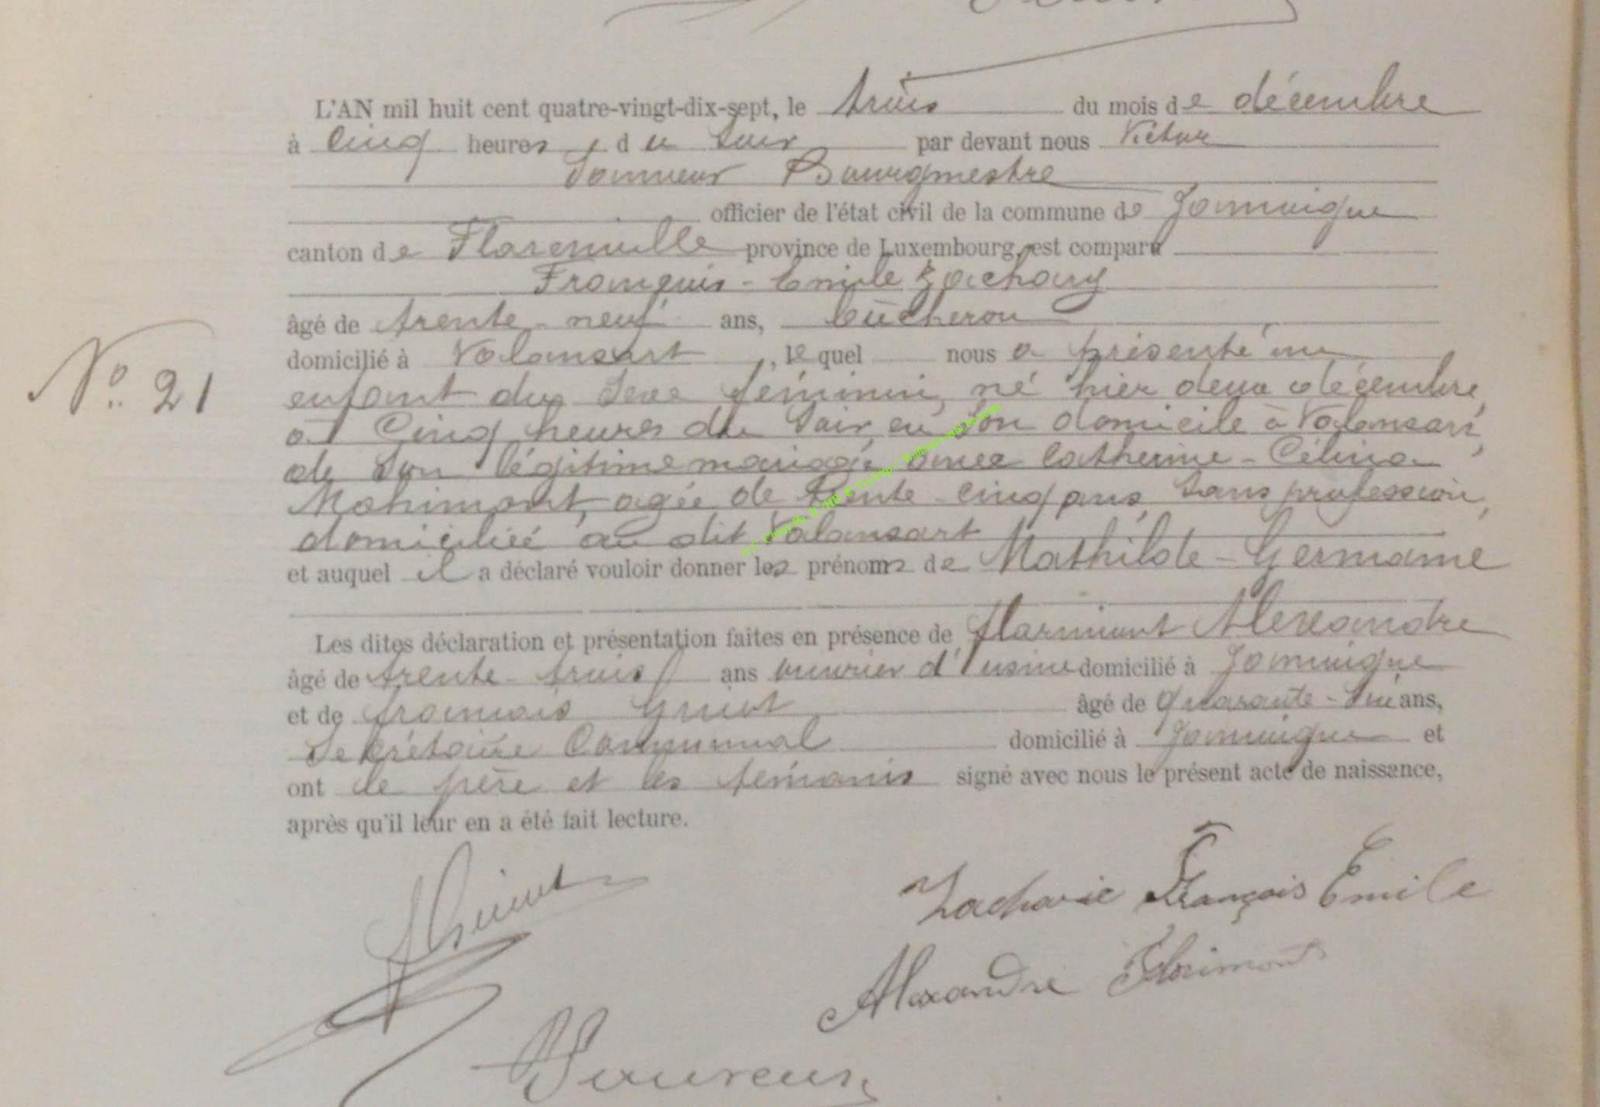 L'AN mil huit cent quatre-vingt-dix-sept, le trois du mois de décembre
à cinq heures du soir par devant nous Victor
Bourgmestre
officier de l'état civil de la commune de Jamoigne
canton de Florenville province de Luxembourg, est comparu
François-Emile Zachary
âgé de trente-neuf ans, bûcheron
domicilié à Valansart, lequel nous a présenté un
enfant du sexe féminin, né hier deux décembre,
à Cinq heures du soir, en son domicile à Valansart,
de son légitime mariage avec Catherine-Célina
Mahimont, agée de trente-cinq ans, sans profession,
domiciliée au dit Valansart
et auquel il a déclaré vouloir donner les prénoms de Mathilde-Germaine
Les dites déclaration et présentation faites en présence de Alexandre
âgé de trente-trois ans ouvrier d'usine domicilié à Jamoigne
et de françois âgé de quarante- ans,
Secrétaire Communal domicilié à Jamoigne et
ont le père et les témoins signé avec nous le présent acte de naissance,
après qu'il leur en a été fait lecture.
No. 21
Zacharie François Emile
Alexandre Florimont